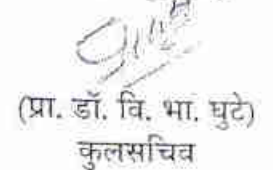 (प्रा. डॉ. वि. भा. घुटे)
कुलसचिव